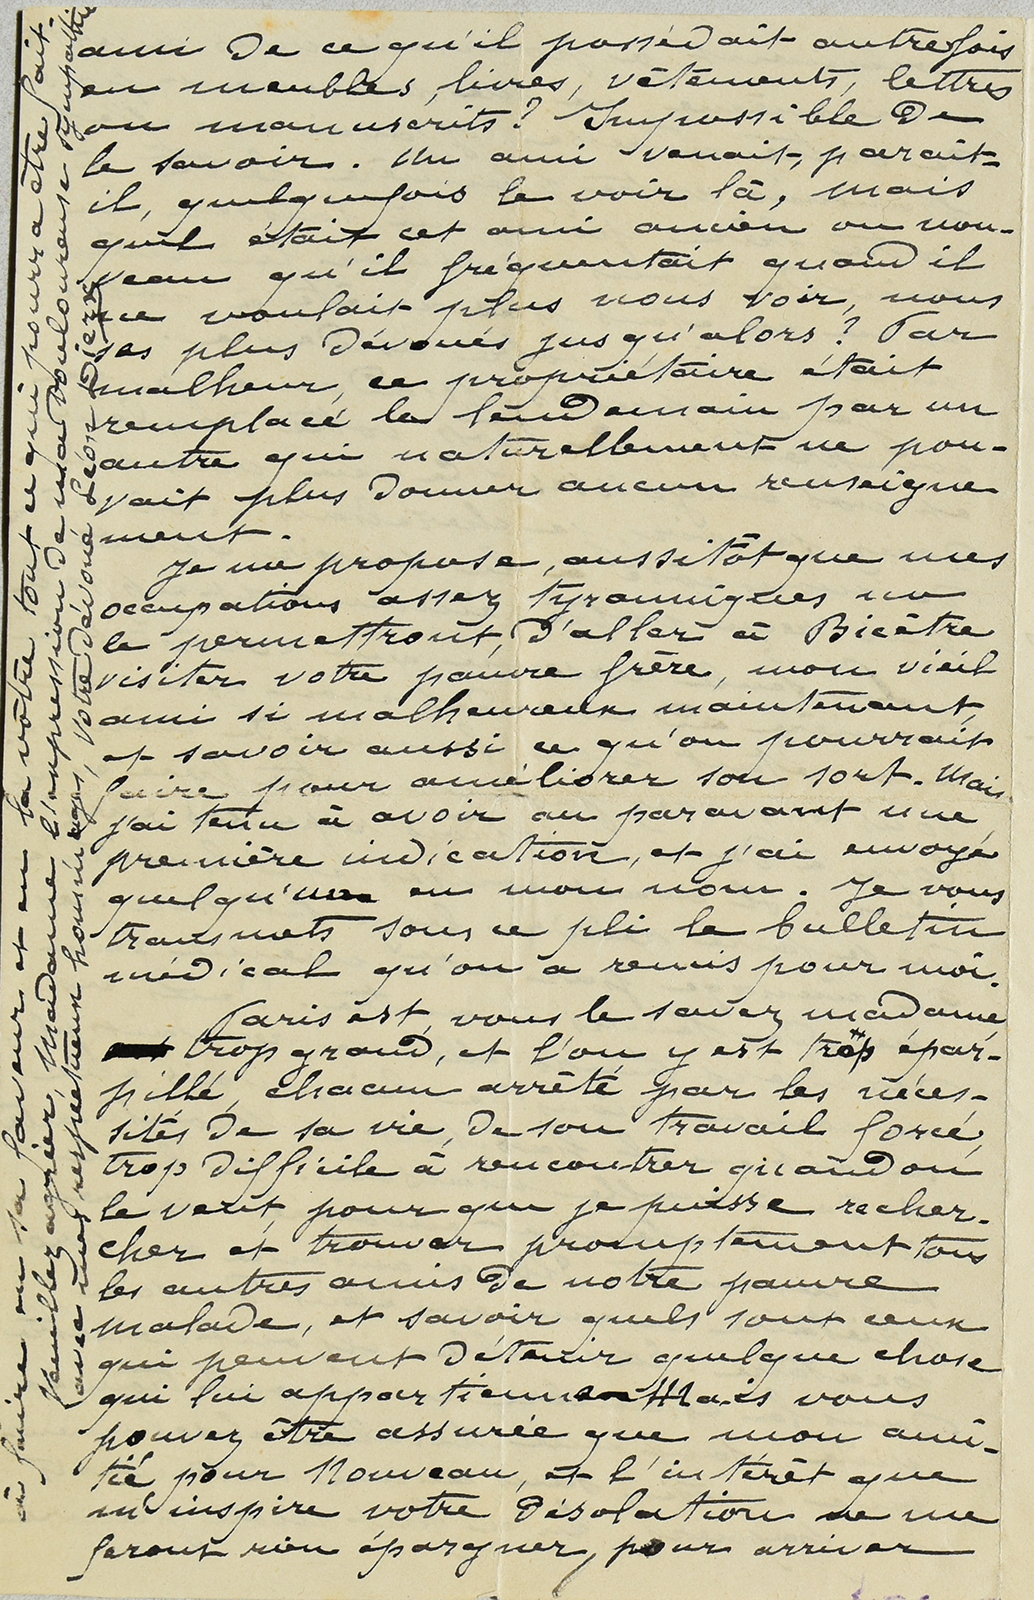 ami de ce qu'il possédait autrefois
en meubles, livres, vêtements, lettres
ou manuscrits? Impossible de
le savoir. Un ami venait, parait-
il, quelquefois le voir là, mais
quel était cet ami ancien ou nou-
veau qu'il fréquentait quand il
ne voulait plus nous voir, nous
ses plus dévoués jusqu'alors? Par
malheur, ce propriétaire était
remplacé le lendemain par un
autre qui naturellement ne pou-
vait plus donner aucun renseigne
ment.
Je me propose, aussitôt que mes
occupations assez tyranniques me
le permettront, d'aller à Bicêtre
visiter votre pauvre frère, mon vieil
ami si malheureux maintenant,
et savoir aussi ce qu'on pourrait
faire pour améliorer son sort. Mais
j'ai tenu à avoir au paravant une
première indication, et j'ai envoyé
quelqu'un en mon nom. Je vous
transmets sous ce pli le bulletin
médical qu'on a remis pour moi.
Paris est, vous le savez madame,
trop grand, et l'on y est trop épar-
pillé, chacun arrêté par les néces-
sités de sa vie, de son travail forcé,
trop difficile à rencontrer quand on
le veut, pour que je puisse recher-
cher et trouver promptement tous
les autres amis de notre pauvre
malade, et savoir quels sont ceux
qui peuvent détenir quelque chose
qui lui appartienne. Mais vous
pouvez être assurée que mon ami-
tié pour Nouveau, et l'intérêt que
m'inspire votre désolation ne me
feront rien épargner, pour arriver
à faire en sa faveur et en la vôtre tout ce qui pourra être fait.
Veuillez agréer, Madame l'expression de ma douloureuse sympathie
avec mes respectueux hommages, votre dévoué Léon Dierx